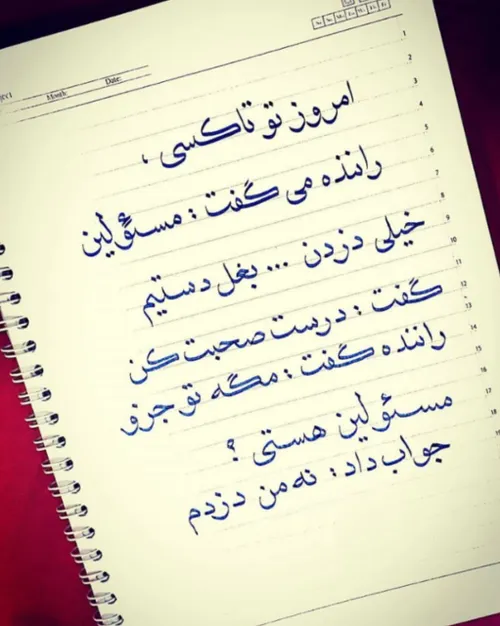 Month: Date:
1
2
3
4
5
6
7
8
9
10
11
12
13
14
15
16
17
18
امروز تو تاکسی ،
راننده می گفت : مسئولین
خیلی دزدن ... بغل دستیم
گفت : درست صحبت کن
راننده گفت : مگه تو جزو
مسئولین هستی ؟
جواب داد : نه من دزدم